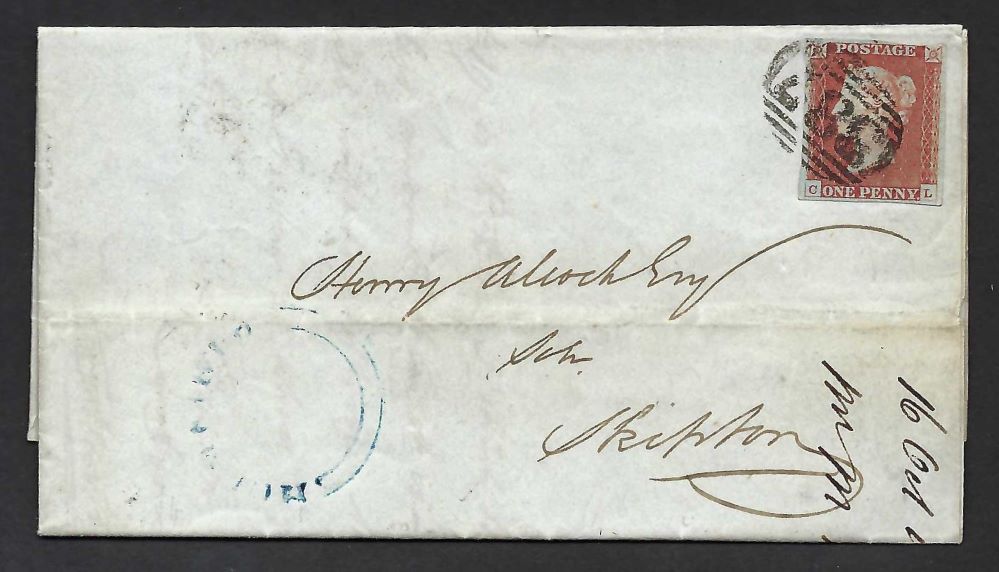 POSTAGE
C ONE PENNY. L
Henry Alcock Esq
Solr
Skipton
16 Oct